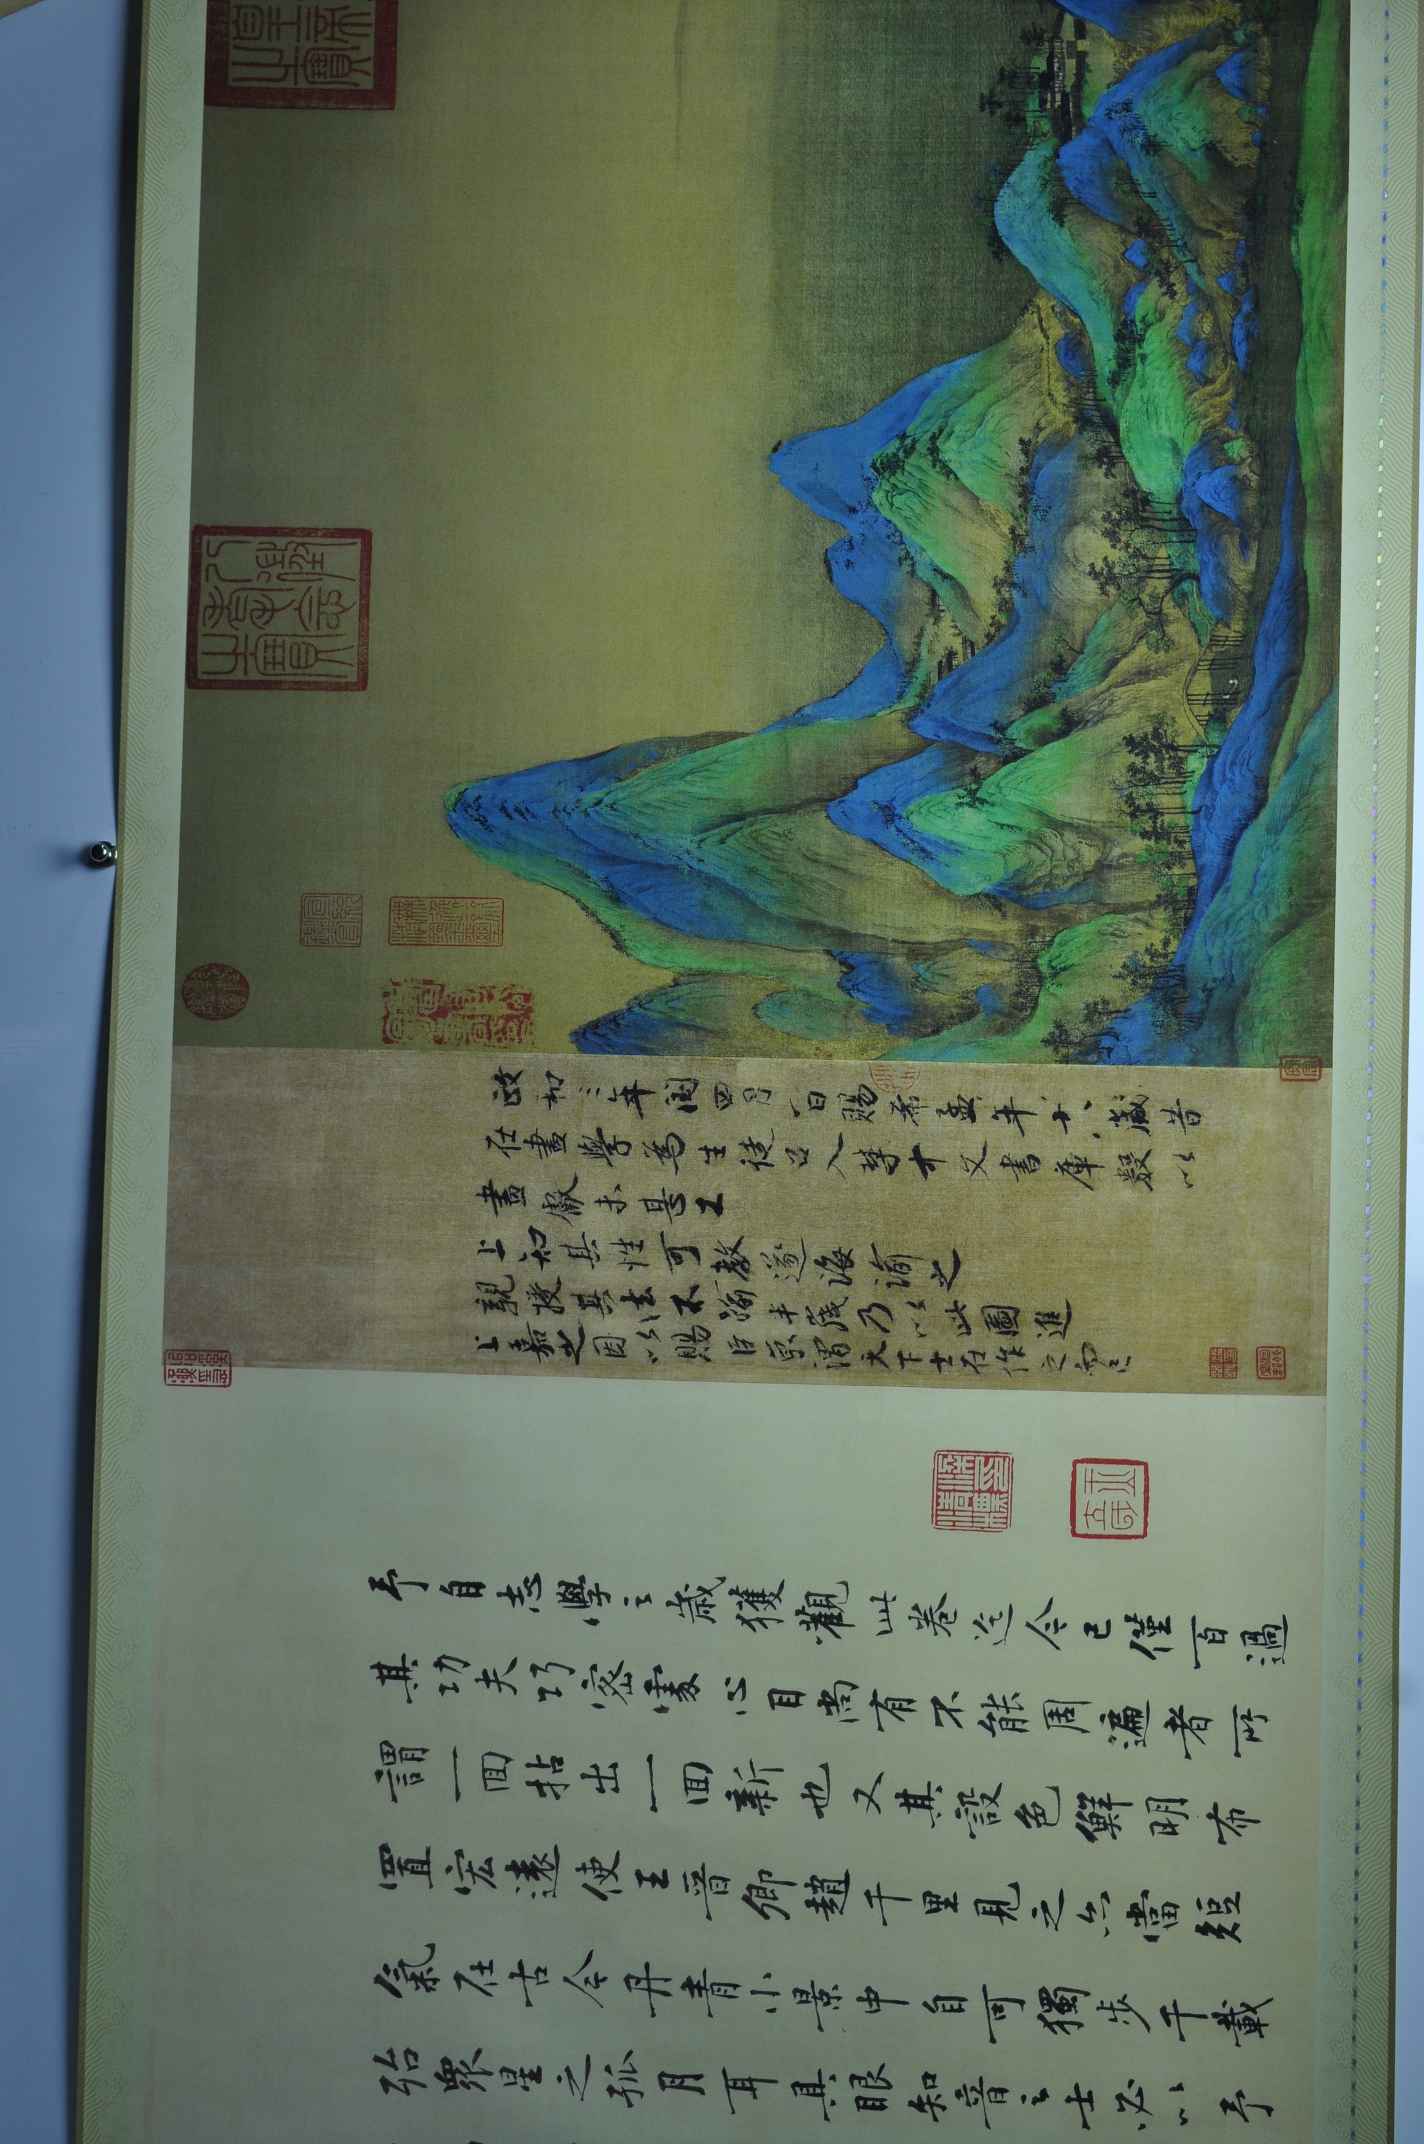 政和三年閏四月一日賜希孟年十八歲昔
在畫學為生徒召入禁中文書庫數以
畫獻未甚工
上知其性可教遂誨諭之
親授其法不踰半歲乃以此圖進
上嘉之因以賜臣京謂天下士在作之而已
予自志學之歲獲觀此卷迄今已僅百過
其功夫巧密處心目尚有不能周遍者所
謂一回拈出一回新也又其設色鮮明布
置宏遠使王晉卿趙千里見之亦當短
氣在古今丹青小景中自可獨步千載
殆眾星之孤月耳具眼知音之士必以予